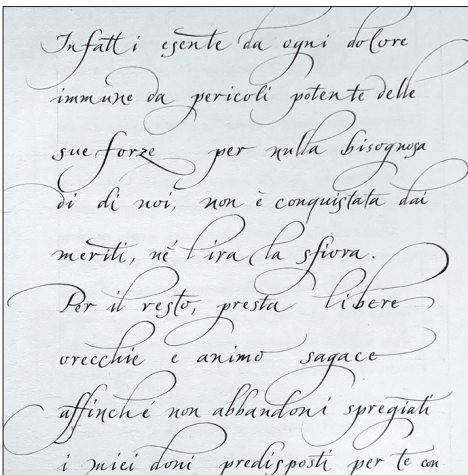 Infatti esente da ogni dolore
immune da pericoli potente delle
sue forze per nulla bisognosa
di di noi, non è conquistata dai
meriti, né l'ira la sfiora.
Per il resto, presta libere
orecchie e animo sagace
affinché non abbandoni spregiati
i miei doni predisposti per te con